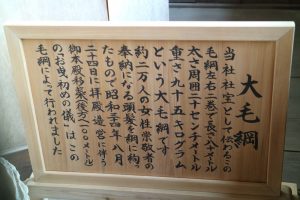 大毛綱
当社社宝として伝わるこの
毛綱左右二巻で長さ八十メートル
太さ周囲二十センチメートル
重さ九十五キログラム
という大毛綱です
約二万人の女性崇敬者の
奉納になる頭髪を綱に約っ
たもので昭和三四年八月
二十四日に拝殿造営に伴う
御本殿移築（後方一〇〇メートル）
のお曳初めの儀はこの
毛綱によって行われました